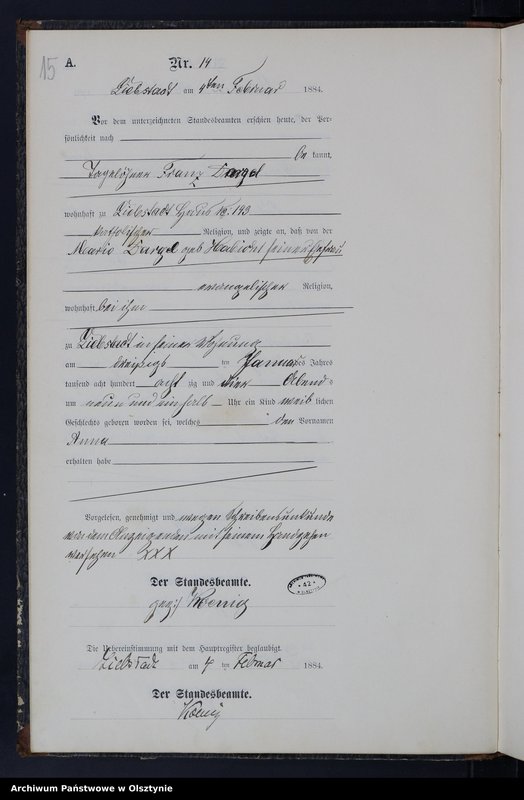 15
A.
Nr. 14
Liebstadt am 4ten Februar 1884.
Vor dem unterzeichneten Standesbeamten erschien heute, der Per-
sönlichkeit nach
be kannt,
Tagelöhner Franz Dargel
wohnhaft zu Liebstadt Haus № 143
katholischer Religion, und zeigte an, daß von der
Maria Dargel geb seiner Ehefrau
evangelischer Religion,
wohnhaft bei ihm
zu Liebstadt in seiner Wohnung
am dreißigs ten Januar des Jahres
tausend acht hundert acht zig und vier Abend-
um neun und einhalb Uhr ein Kind weib lichen
Geschlechts geboren worden sei, welches den Vornamen
Anna
erhalten habe
Vorgelesen, genehmigt und wegen Schreibensunkunde
von dem Anzeigenden mit seinem Handzeichen
versehen XXX
Der Standesbeamte.
gez: Koenig
42
Die Uebereinstimmung mit dem Hauptregister beglaubigt.
Liebstadt am 4 ten Februar 1884.
Der Standesbeamte.
Koenig
Archiwum Państwowe w Olsztynie